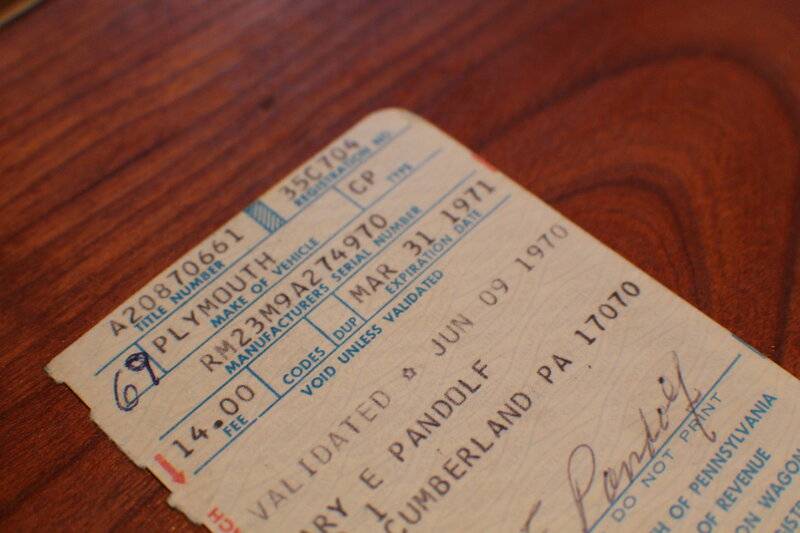 A20870661 35C704
TITLE NUMBER REGISTRATION NO.
69 PLYMOUTH CP
MAKE OF VEHICLE TYPE
RM23M9A274970
MANUFACTURERS SERIAL NUMBER
14.00 MAR 31 1971
FEE CODES DUP EXPIRATION DATE
VOID UNLESS VALIDATED
VALIDATED ☆ JUN 09 1970
RY E PANDOLF
1
CUMBERLAND PA 17070
E Pandolf
DO NOT PRINT
H OF PENNSYLVANIA
OF REVENUE
ON WAGON